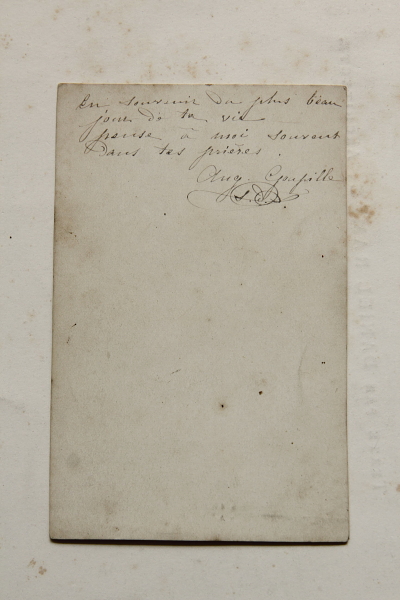 En souvenir du plus beau
jour de ta vie
pense à moi souvent
Dans tes prières.
Aug.